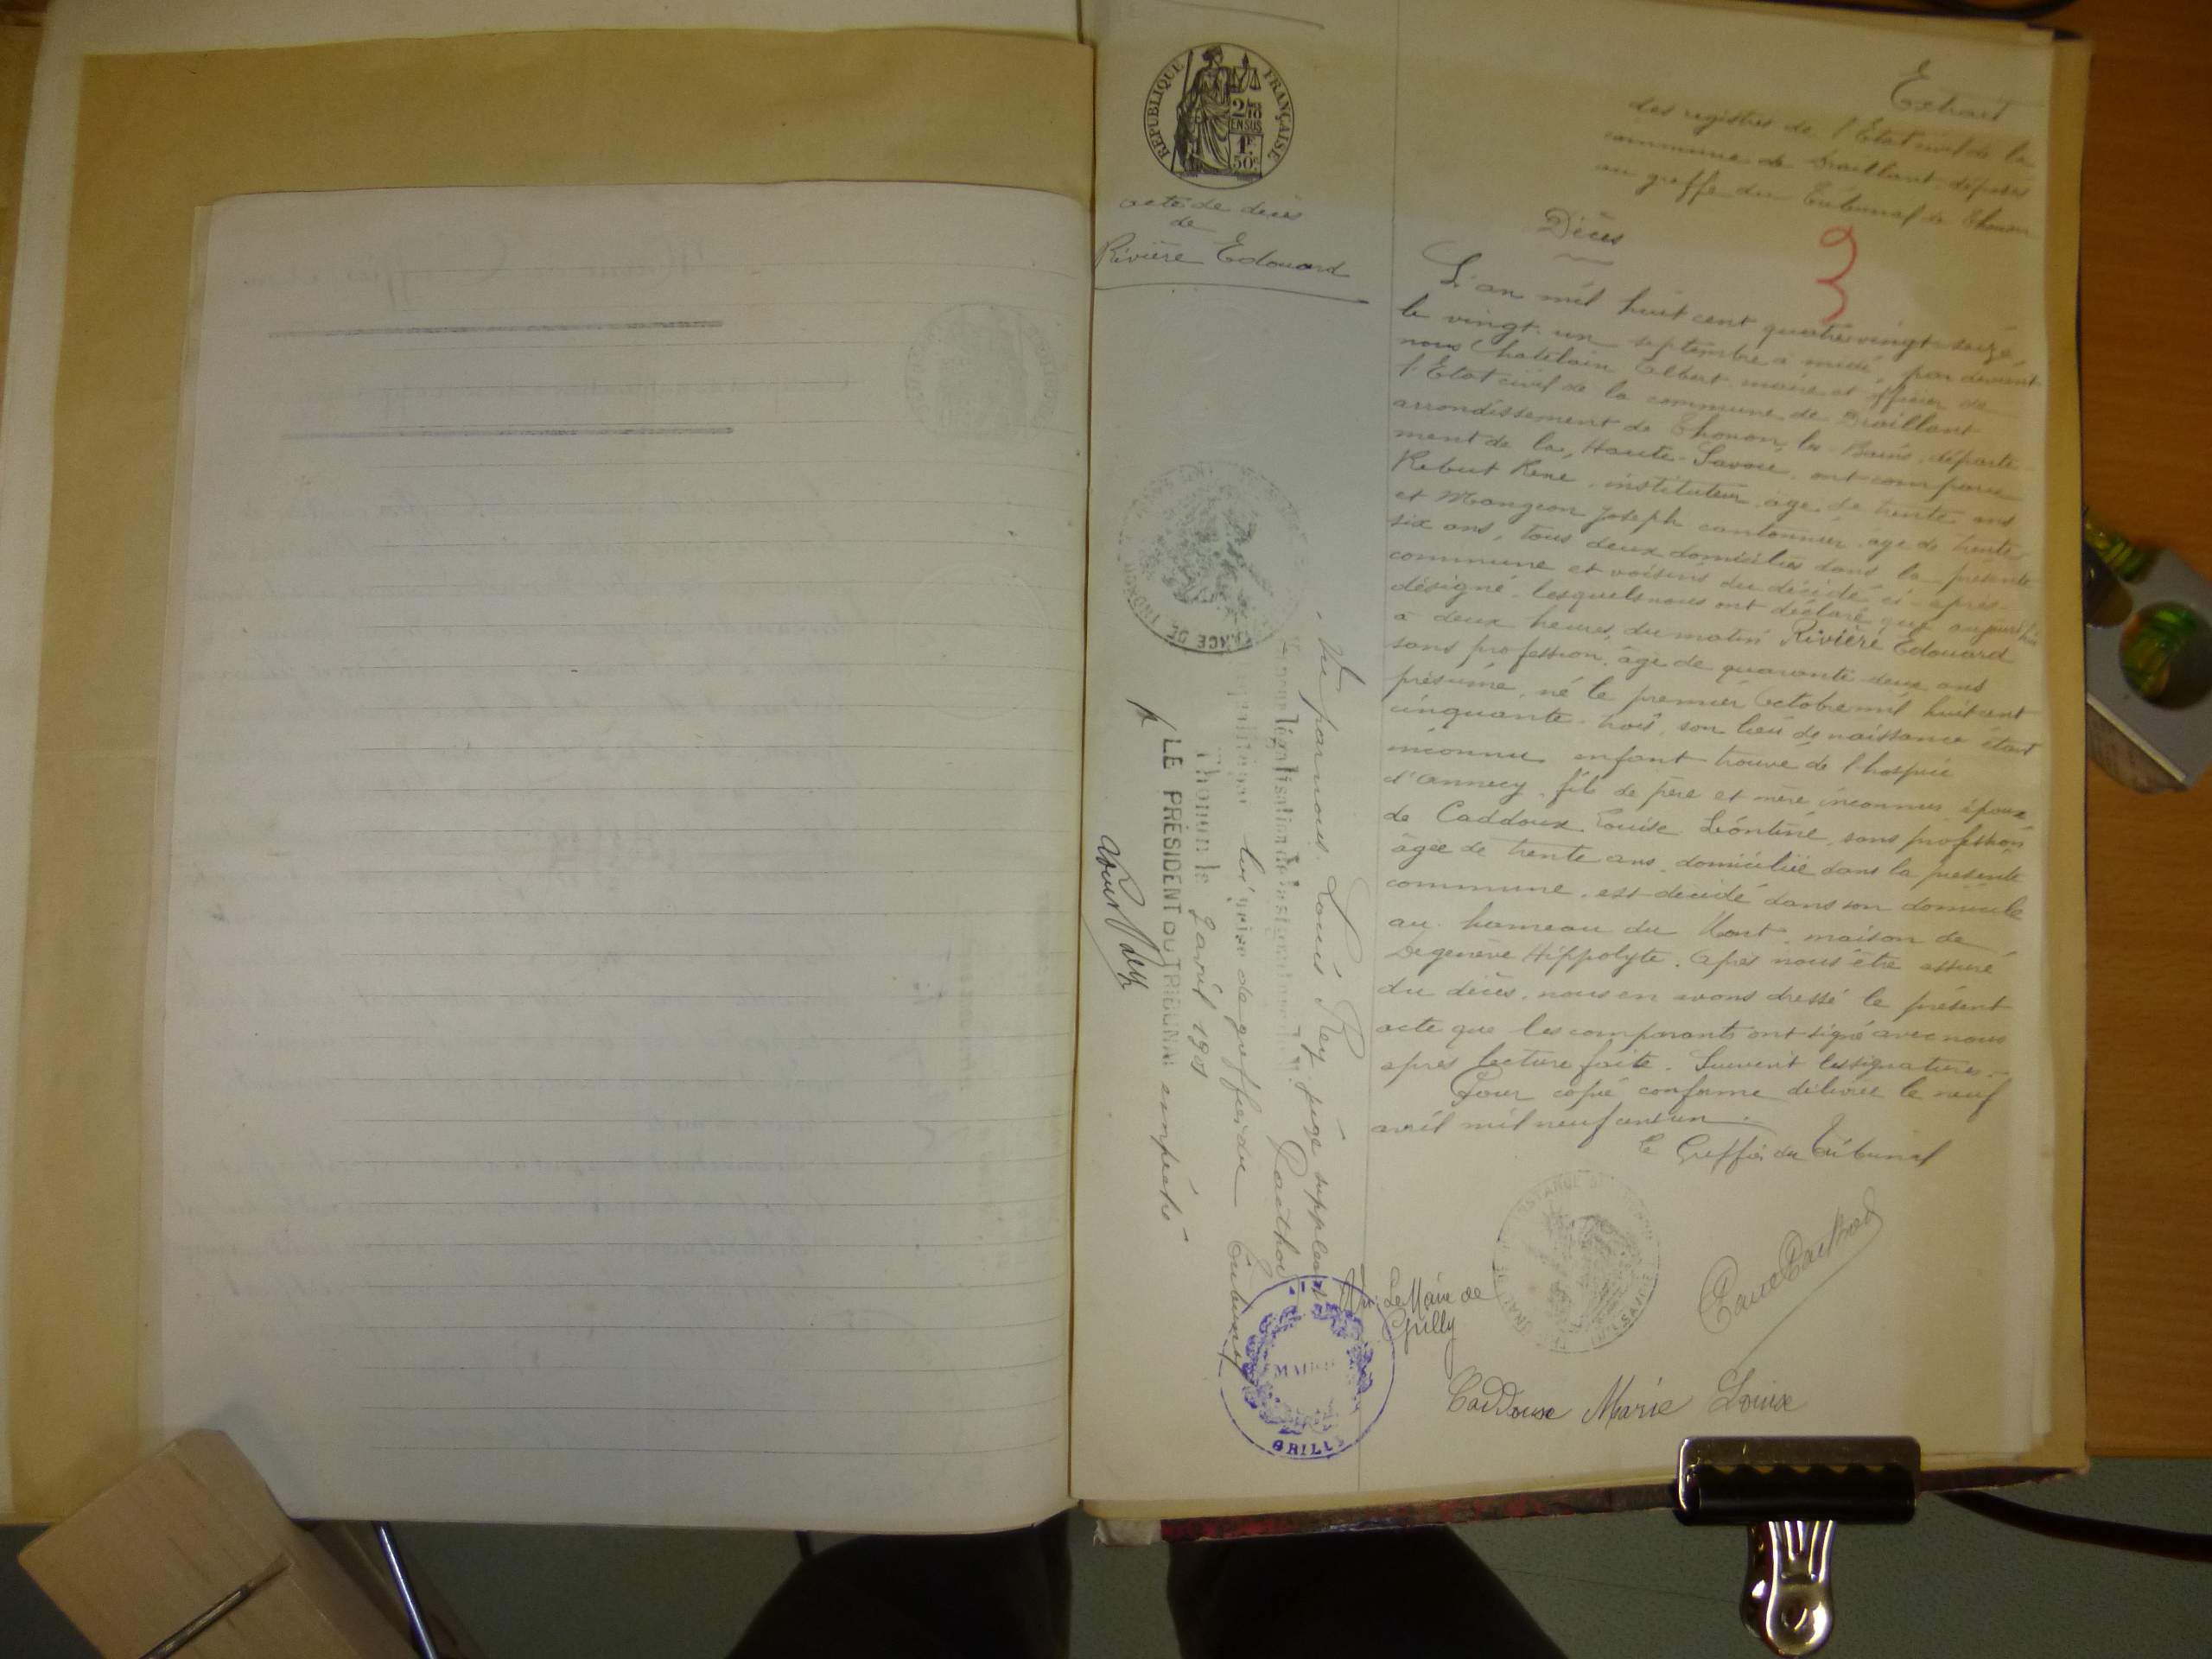 RÉPUBLIQUE FRANÇAISE
2/10
EN SUS
1F
50c
acte de décès
de
Rivière Edouard
Extrait
des registres de l'Etat civil de la
commune de Draillant, déposés
au greffe du Tribunal de Thonon
3
Décès
L'an mil huit cent quatre vingt seize
le vingt un septembre à midi, par devant
nous Chatelain Albert maire et officier de
l'Etat civil de la commune de Draillant
arrondissement de Thonon les Bains, départe-
ment de la Haute-Savoie, ont comparu
Rebut René, instituteur, âgé de trente ans
et Mangeon Joseph cantonnier, âgé de trente
six ans, tous deux domiciliés dans la présente
commune et voisins du décédé ci-après
désigné, lesquels nous ont déclaré que aujourd'hui
à deux heures du matin Rivière Edouard
sans profession, âgé de quarante deux ans
présumé, né le premier Octobre mil huit cent
cinquante-trois, son lieu de naissance étant
inconnu, enfant trouvé de l'hospice
d'Annecy, fils de père et mère inconnus, époux
de Caddoux Louise Léontine, sans profession
âgée de trente ans, domiciliée dans la présente
commune, est décédé dans son domicile
au hameau du Mont, maison de
Degenève Hippolyte. Après nous être assuré
du décès, nous en avons dressé le présent
acte que les comparants ont signé avec nous
après lecture faite. Suivent les signatures.
Pour copie conforme délivrée le neuf
avril mil neuf cent un.
Le Greffier du Tribunal
Vu par nous Louis Rey juge suppléant
pour légalisation de la signature
greffier du Tribunal
Thonon le 9 avril 1901
p LE PRÉSIDENT DU TRIBUNAL empêché
Vu. Le Maire de
Grilly
MAIRIE
GRILLY
Caddoux Marie Louise